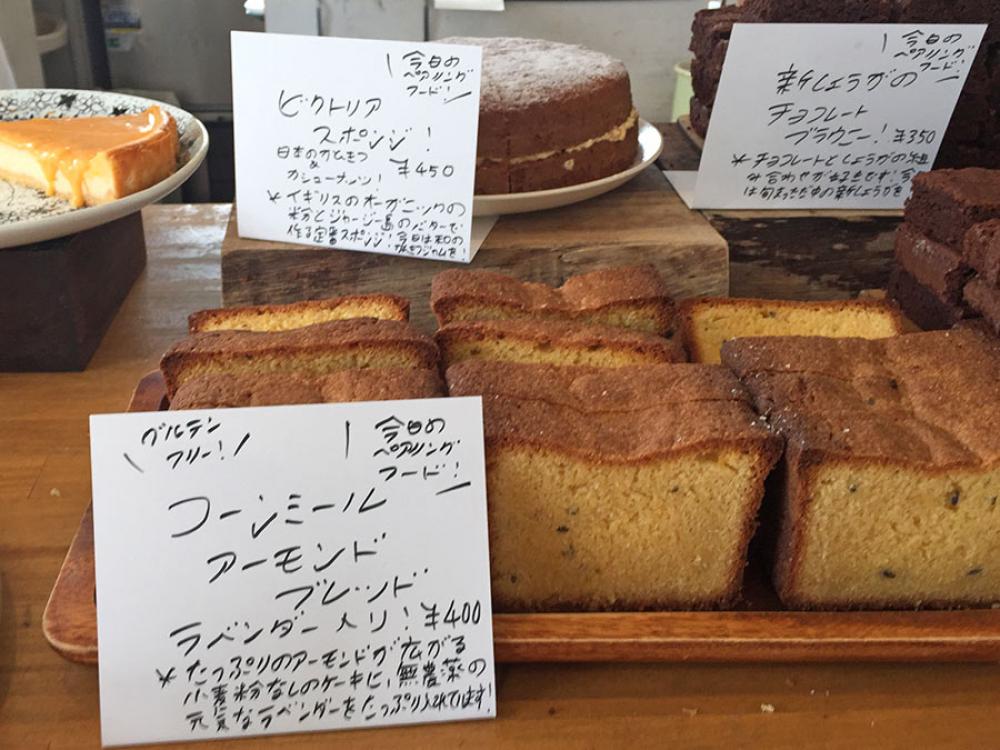 今日の
ペアリング
フード!
ビクトリア
スポンジ!
日本のかんきつ
&
カシューナッツ! ¥450
* イギリスのオーガニックの
粉とジャージー島のバターで
作る定番スポンジ!今日は和の
今日の
ペアリング
フード!
新しょうがの
チョコレート
ブラウニー! ¥350
* チョコレートとしょうがの組
み合わせが好きです!今
は旬まっただ中の新しょうがを
グルテン
フリー!
今日の
ペアリング
フード!
コーンミール
アーモンド
ブレンド
ラベンダー入り! ¥400
* たっぷりのアーモンドが広がる
小麦粉なしのケーキに、無農薬の
元気なラベンダーをたっぷり入れてます!